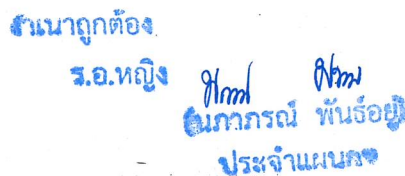 สำเนาถูกต้อง
ร.อ.หญิง
นภาภรณ์ พันธ์อยู่
ประจำแผนก